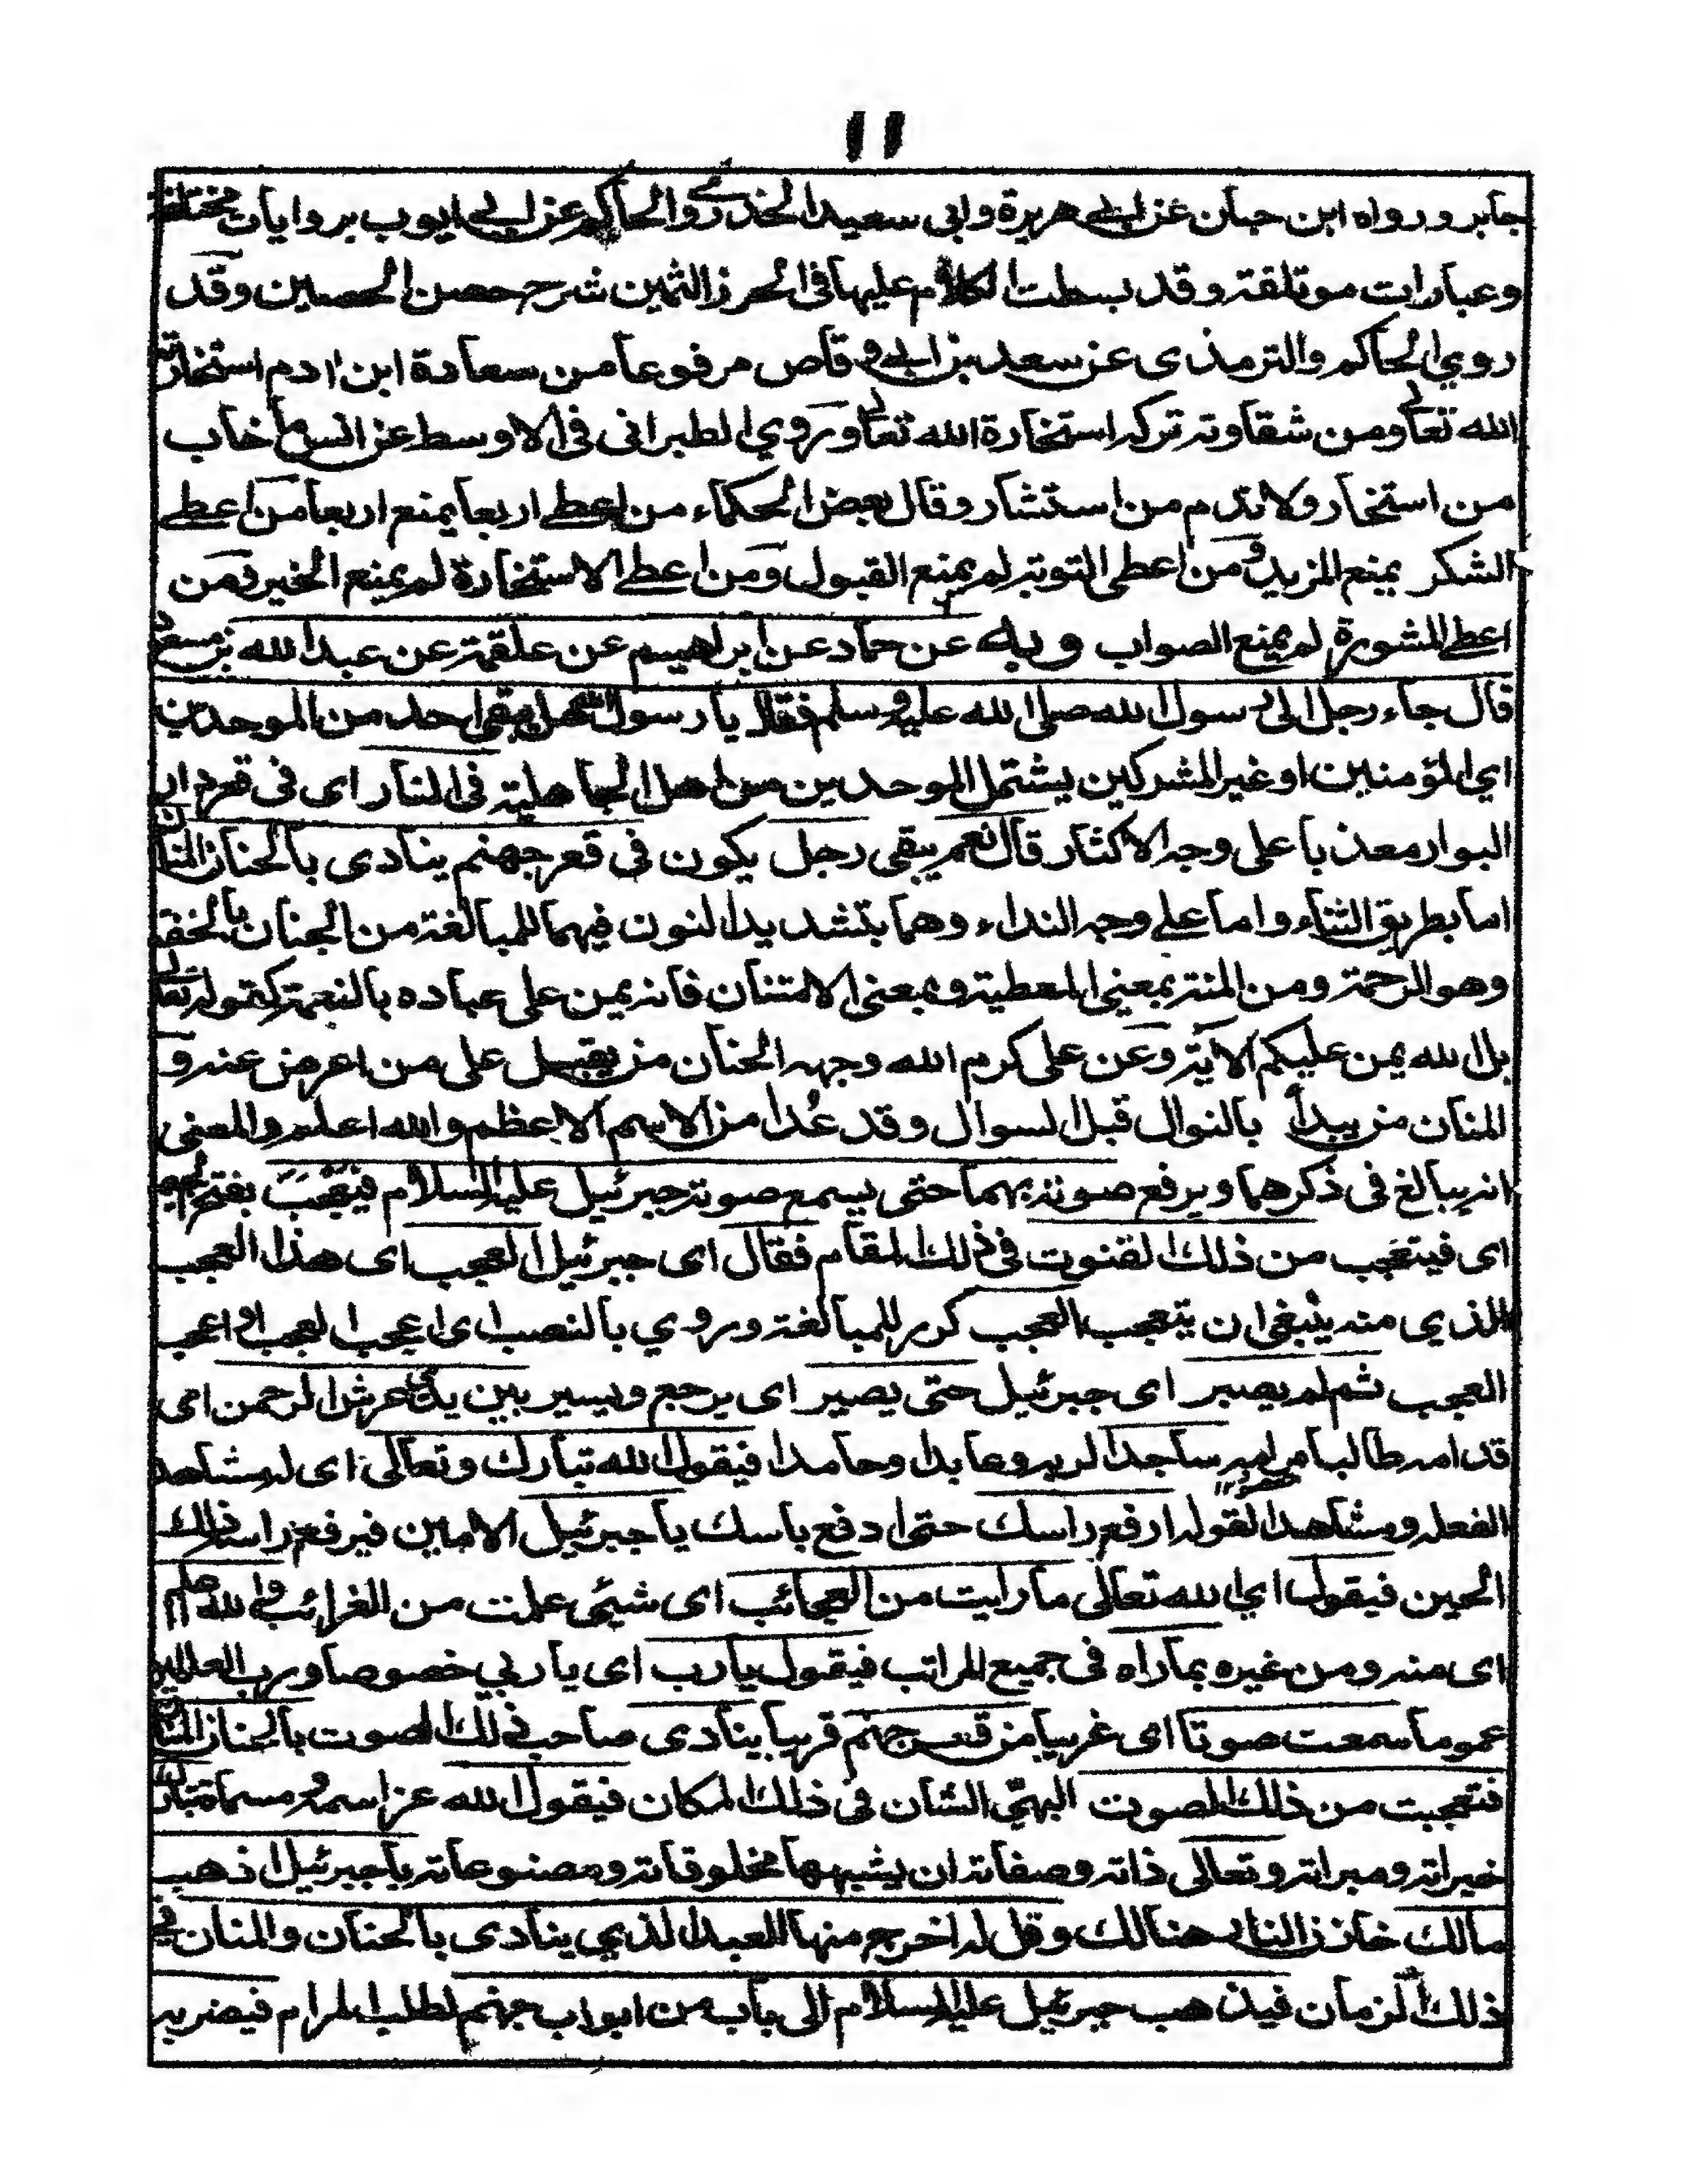 ١١
جابر ورواه ابن حبان عن ابي هريرة وابي سعيد الخدري والحاكم عن ابي ايوب بروايات مختلفة
وعبارات موتلفة وقد بسطت الكلام عليها فى الحرز الثمين شرح حصن الحصين وقد
روي الحاكم والترمذى عن سعد بن ابي وقاص مرفوعا من سعادة ابن ادم استخارته
الله تعالى ومن شقاوته تركه استخارة الله تعالى وروي الطبرانى فى الاوسط عن انس ما خاب
من استخار ولا ندم من استشار وقال بعض الحكماء من اعطے اربعا يمنع اربعا من اعطے
الشكر يمنع المزيد ومن اعطى التوبة لم يمنع القبول ومن اعطے الاستخارة لم يمنع الخير ومن
اعطے المشورة لم يمنع الصواب وبه عن حماد عن ابراهيم عن علقمة عن عبد الله بن مسعود
قال جاء رجل الى رسول الله صلى الله عليه وسلم فقال يا رسول الله هل يبقى احد من الموحدين
اي المؤمنين او غير المشركين يشتمل الموحدين من اهل الجاهلية فى النار اى فى قعر دار
البوار معذبا على وجه الاكثار قال نعم يبقى رجل يكون فى قعر جهنم ينادى بالحنان المنان
اما بطريق الثناء واما علے وجه النداء وهما بتشديد النون فيهما للمبالغة من الحنان بالخفة
وهو الرحمة ومن المنة بمعنى العطية وبمعنى الامتنان فانه يمن على عباده بالنعمة كقوله تعالى
بل الله يمن عليكم الاية وعن على كرم الله وجهه الحنان من يقبل على من اعرض عنه و
المنان من يبدأ بالنوال قبل السوال وقد عُدا من الاسم الاعظم والله اعلم والمعنى
انه يبالغ فى ذكرهما ويرفع صوته بهما حتى يسمع صوته جبرئيل عليه السلام فيتعجب بفتح الجيم
اى فيتعجب من ذلك القنوت فى ذلك المقام فقال اى جبرئيل العجب اى هذا العجب
الذي منه ينبغى ان يتعجب العجب كرر للمبالغة وروي بالنصب اى اعجب العجب او اعجب
العجب ثم لم يصبر اى جبرئيل حتى يصير اى يرجع ويسير بين يدى عرش الرحمن اى
قدامه طالبا مرامه ساجدا لربه وعابدا وحامدا فيقول الله تبارك وتعالى اى له مشاهد
الفعله ومشاهدا لقوله ارفع راسك حتى ادفع باسك يا جبرئيل الامين فيرفع راسه ذلك
الحين فيقول اي الله تعالى ما رايت من العجائب اى شيئ علمت من الغرائب والله اعلم
اى منه ومن غيره بما راه فى جميع المراتب فيقول يا رب اى يا ربي خصوصا ورب العلمين
عموما سمعت صوتا اى غريبا من قعر جهنم قريبا ينادى صاحب ذلك الصوت بالحنان المنان
فتعجبت من ذلك الصوت البهىّ الشان فى ذلك المكان فيقول الله عز اسمه ومسماه تبارك
خيراته ومبراته وتعالى ذاته وصفاته ان يشبهها مخلوقاته ومصنوعاته يا جبرئيل اذهب
مالك خازن النار هنالك وقل له اخرج منها العبد الذي ينادى بالحنان والمنان في
ذلك الزمان فيذهب جبرئيل عليه السلام الى باب من ابواب جهنم لطلب المرام فيضربه